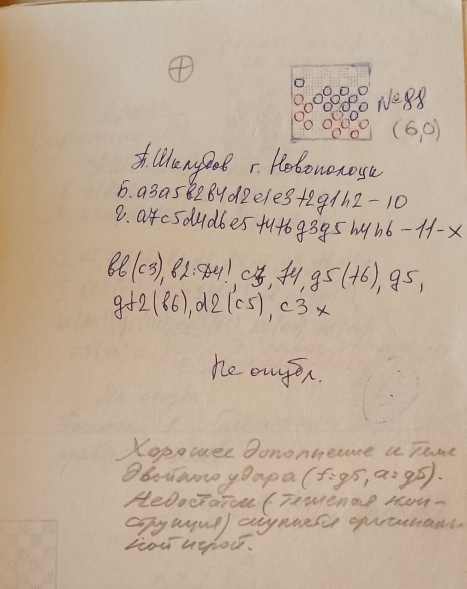 №88
(6,0)
П. Шклудов г. Новополоцк
б. a3a5b2b4d2e1e3f2g1h2 – 10
ч. a7c5d4d6e5f4f6g3g5h4h6 – 11 – x
b6(c3), b2:d4!, f4, g5(f6), g5,
gf2(b6), d2(c5), c3 x
Не опубл.
Хорошее дополнение к теме
двойного удара (f:g5, a:g5).
Недостаток (тяжелая кон-
струкция) искупается оригиналь-
ной игрой.